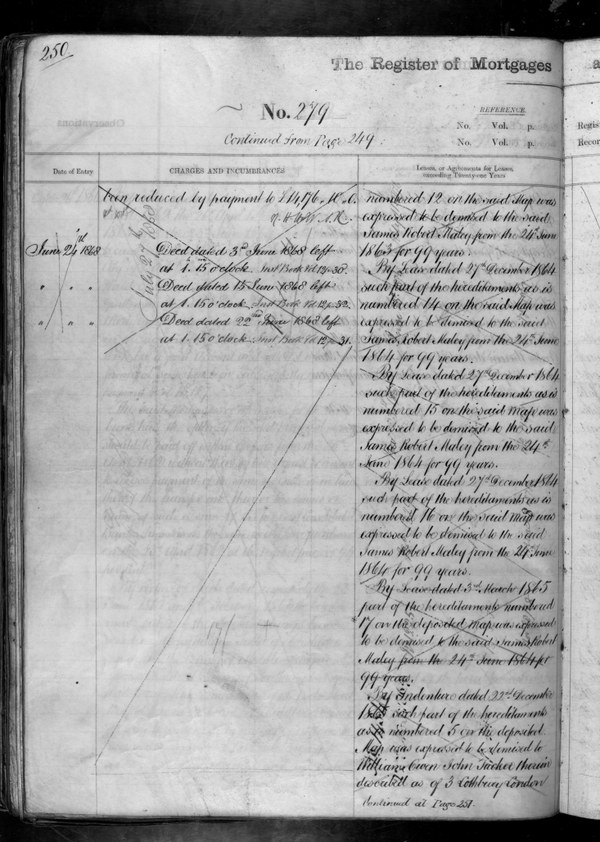 250
The Register of Mortgages
No. 279
REFERENCE.
No. Vol. p.
Continued from Page 249.
No. Vol. p.
Date of Entry
CHARGES AND INCUMBRANCES
Leases, or Agreements for Leases,
exceeding Twenty-one Years
been reduced by payment to £14,176
June 24th 1868
Deed dated 3rd June 1868 left
at 1.15 o'clock. Inst Book Vol 12 p. 30.
" " "
Deed dated 15 June 1868 left
at 1.15 o'clock. Inst Book Vol 12 p. 32.
" " "
Deed dated 22nd June 1868 left
at 1.15 o'clock. Inst Book Vol 12 p. 31.
July 27
numbered 12 on the said Map was
expressed to be demised to the said
James Robert Maley from the 24th June
1863 for 99 years.
By Lease dated 27th December 1864
such part of the hereditaments as is
numbered 14 on the said Map was
expressed to be demised to the said
James Robert Maley from the 24th June
1864 for 99 years.
By Lease dated 27th December 1864
such part of the hereditaments as is
numbered 15 on the said Map was
expressed to be demised to the said
James Robert Maley from the 24th
June 1864 for 99 years.
By Lease dated 27th December 1864
such part of the hereditaments as is
numbered 16 on the said Map was
expressed to be demised to the said
James Robert Maley from the 24th June
1864 for 99 years.
By Lease dated 3rd March 1865
part of the hereditaments numbered
17 on the deposited Map was expressed
to be demised to the said James Robert
Maley from the 24th June 1864 for
99 years.
By Indenture dated 22nd December
such part of the hereditaments
as is numbered 5 on the deposited
Map was expressed to be demised to
William Owen John Tucker therein
described as of 3 Lothbury London
Continued at Page 251.